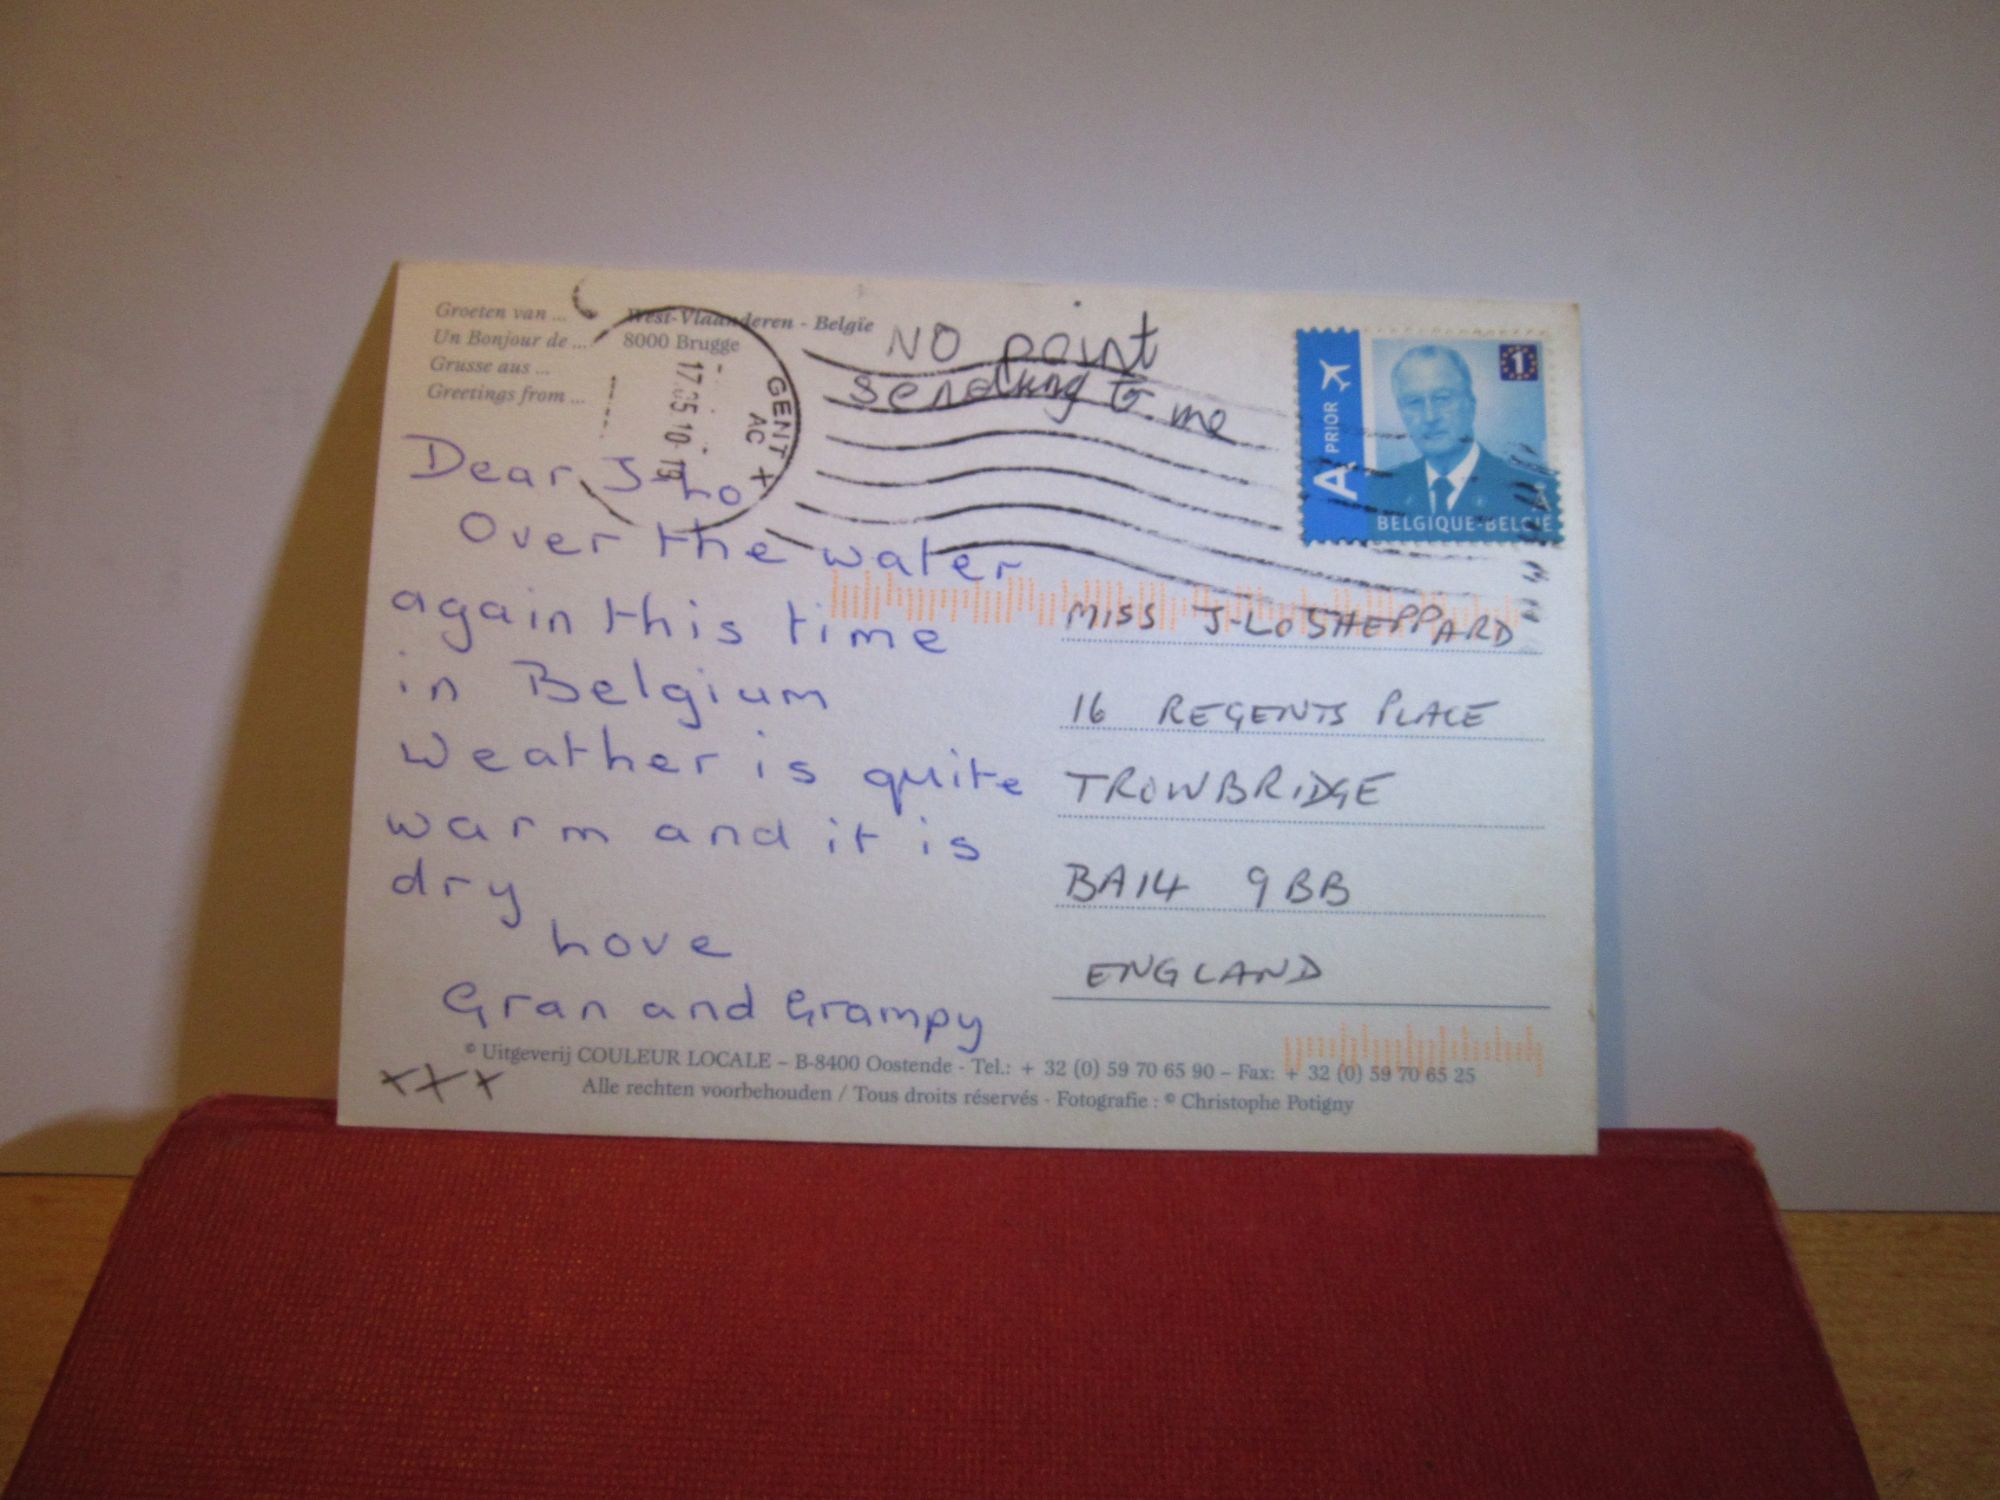 Groeten van ...
Un Bonjour de ...
Grusse aus ...
Greetings from ...
West-Vlaanderen - Belgïe
8000 Brugge
GENT X
AC
17.05 10 19
NO point
sending to me
A PRIOR
1
BELGIQUE-BELGIË
Dear J-Lo
Over the water
again this time
in Belgium
Weather is quite
warm and it is
dry
Love
Gran and Grampy
XXX
MISS J-LO SHEPPARD
16 REGENTS PLACE
TROWBRIDGE
BA14 9BB
ENGLAND
© Uitgeverij COULEUR LOCALE – B-8400 Oostende - Tel.: + 32 (0) 59 70 65 90 – Fax: + 32 (0) 59 70 65 25
Alle rechten voorbehouden / Tous droits réservés - Fotografie : © Christophe Potigny